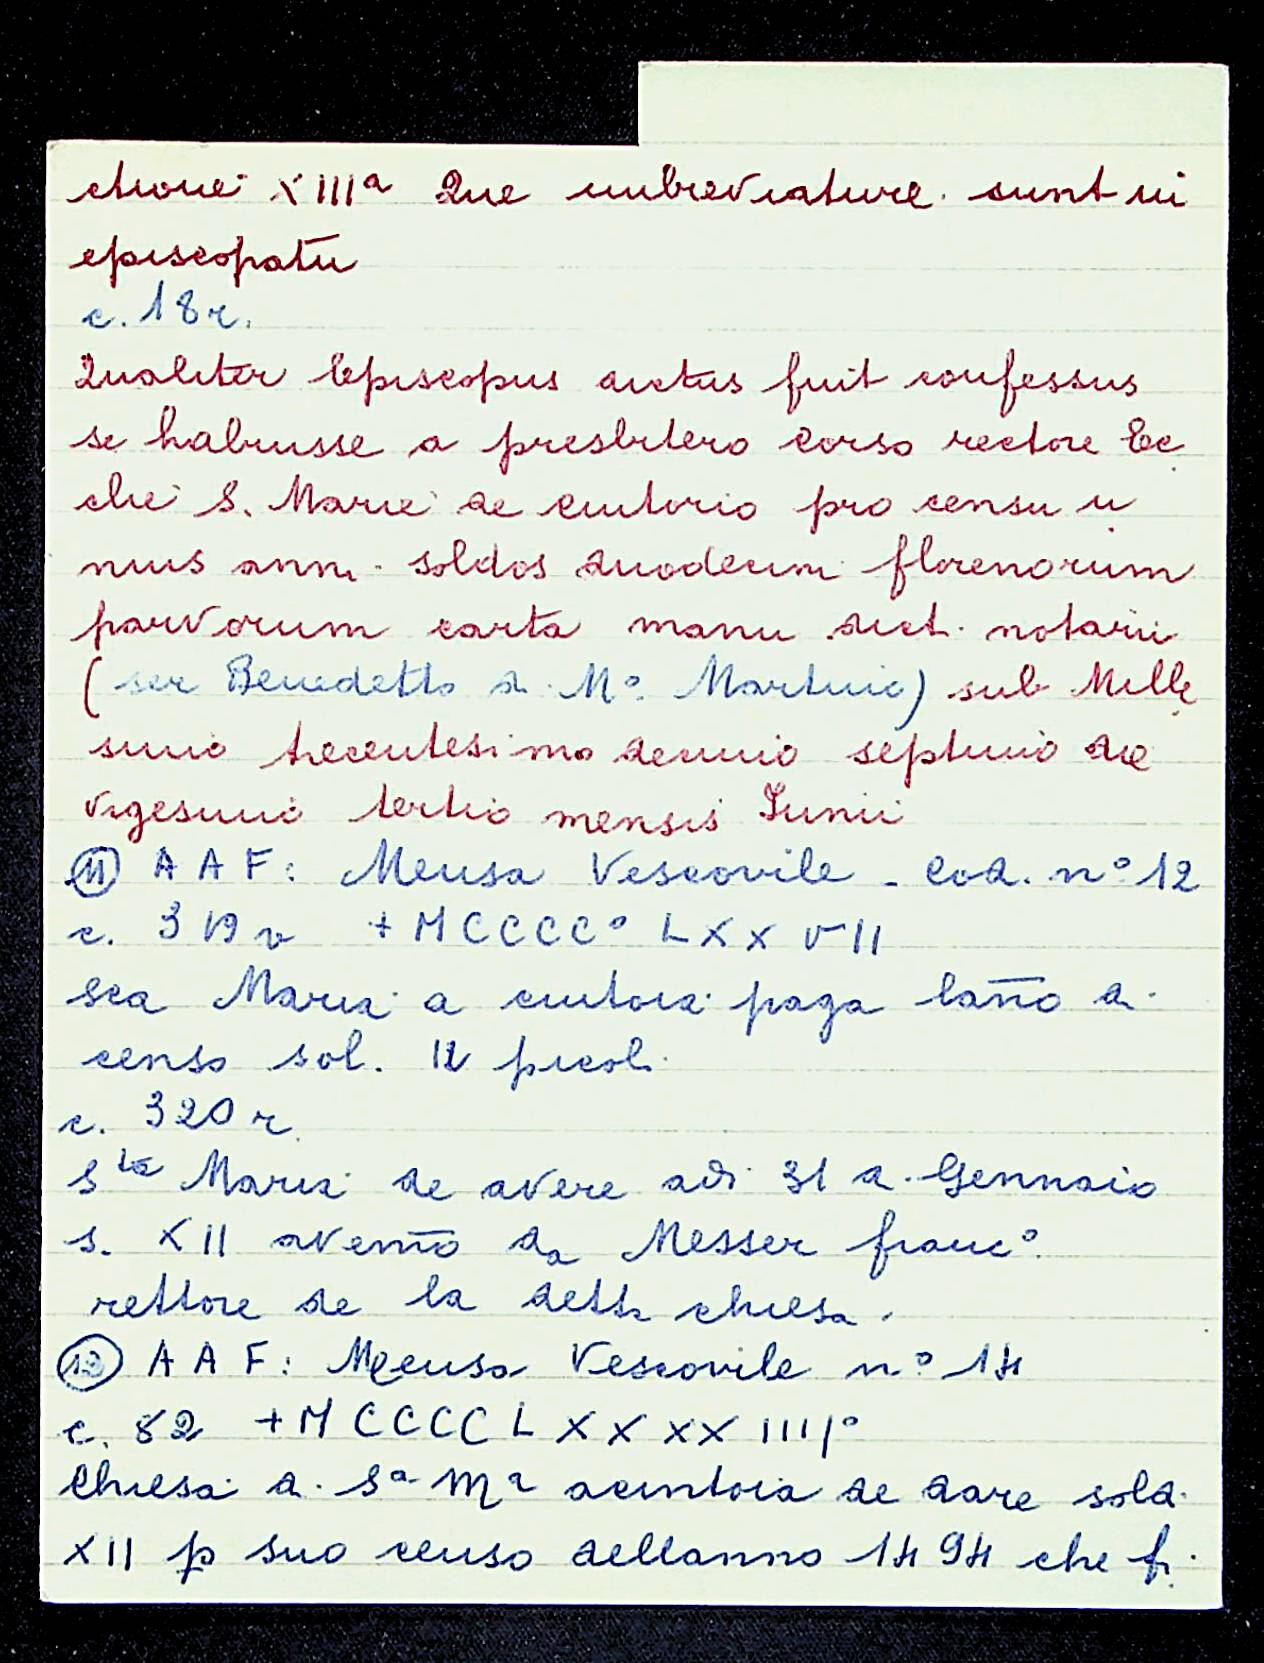 ctione XIIIª Que imbreviature sunt in
episcopatu
c. 18 r.
Qualiter Episcopus dictus fuit confessus
se habuisse a presbitero Corso rectore Ec
clie S. Marie de Cintorio pro censu u
nius anni soldos duodecim florenorum
parvorum carta manu dict. notarii
(ser Benedetto d. Mº. Martino) sub Mille
simo trecentesimo decimo septimo die
vigesimo tertio mensis Iunii
⑪ A A F: Mensa Vescovile - Cod. nº 12
c. 319 v + M C C C Cº L X X V II
Sca Maria a cintoia paga lanño d.
censo sol. 12 picoli
c. 320 r
Sta Maria de avere adi 31 d. Gennaio
s. XII avemo da Messer francº.
rettore de la detta chiesa.
⑫ A A F: Mensa Vescovile nº 14
c. 82 + M C C C C L X X X X IIIIº
Chiesa d. Sª Mª acintoia de dare sold.
XII p suo censo dellanno 1494 che f.